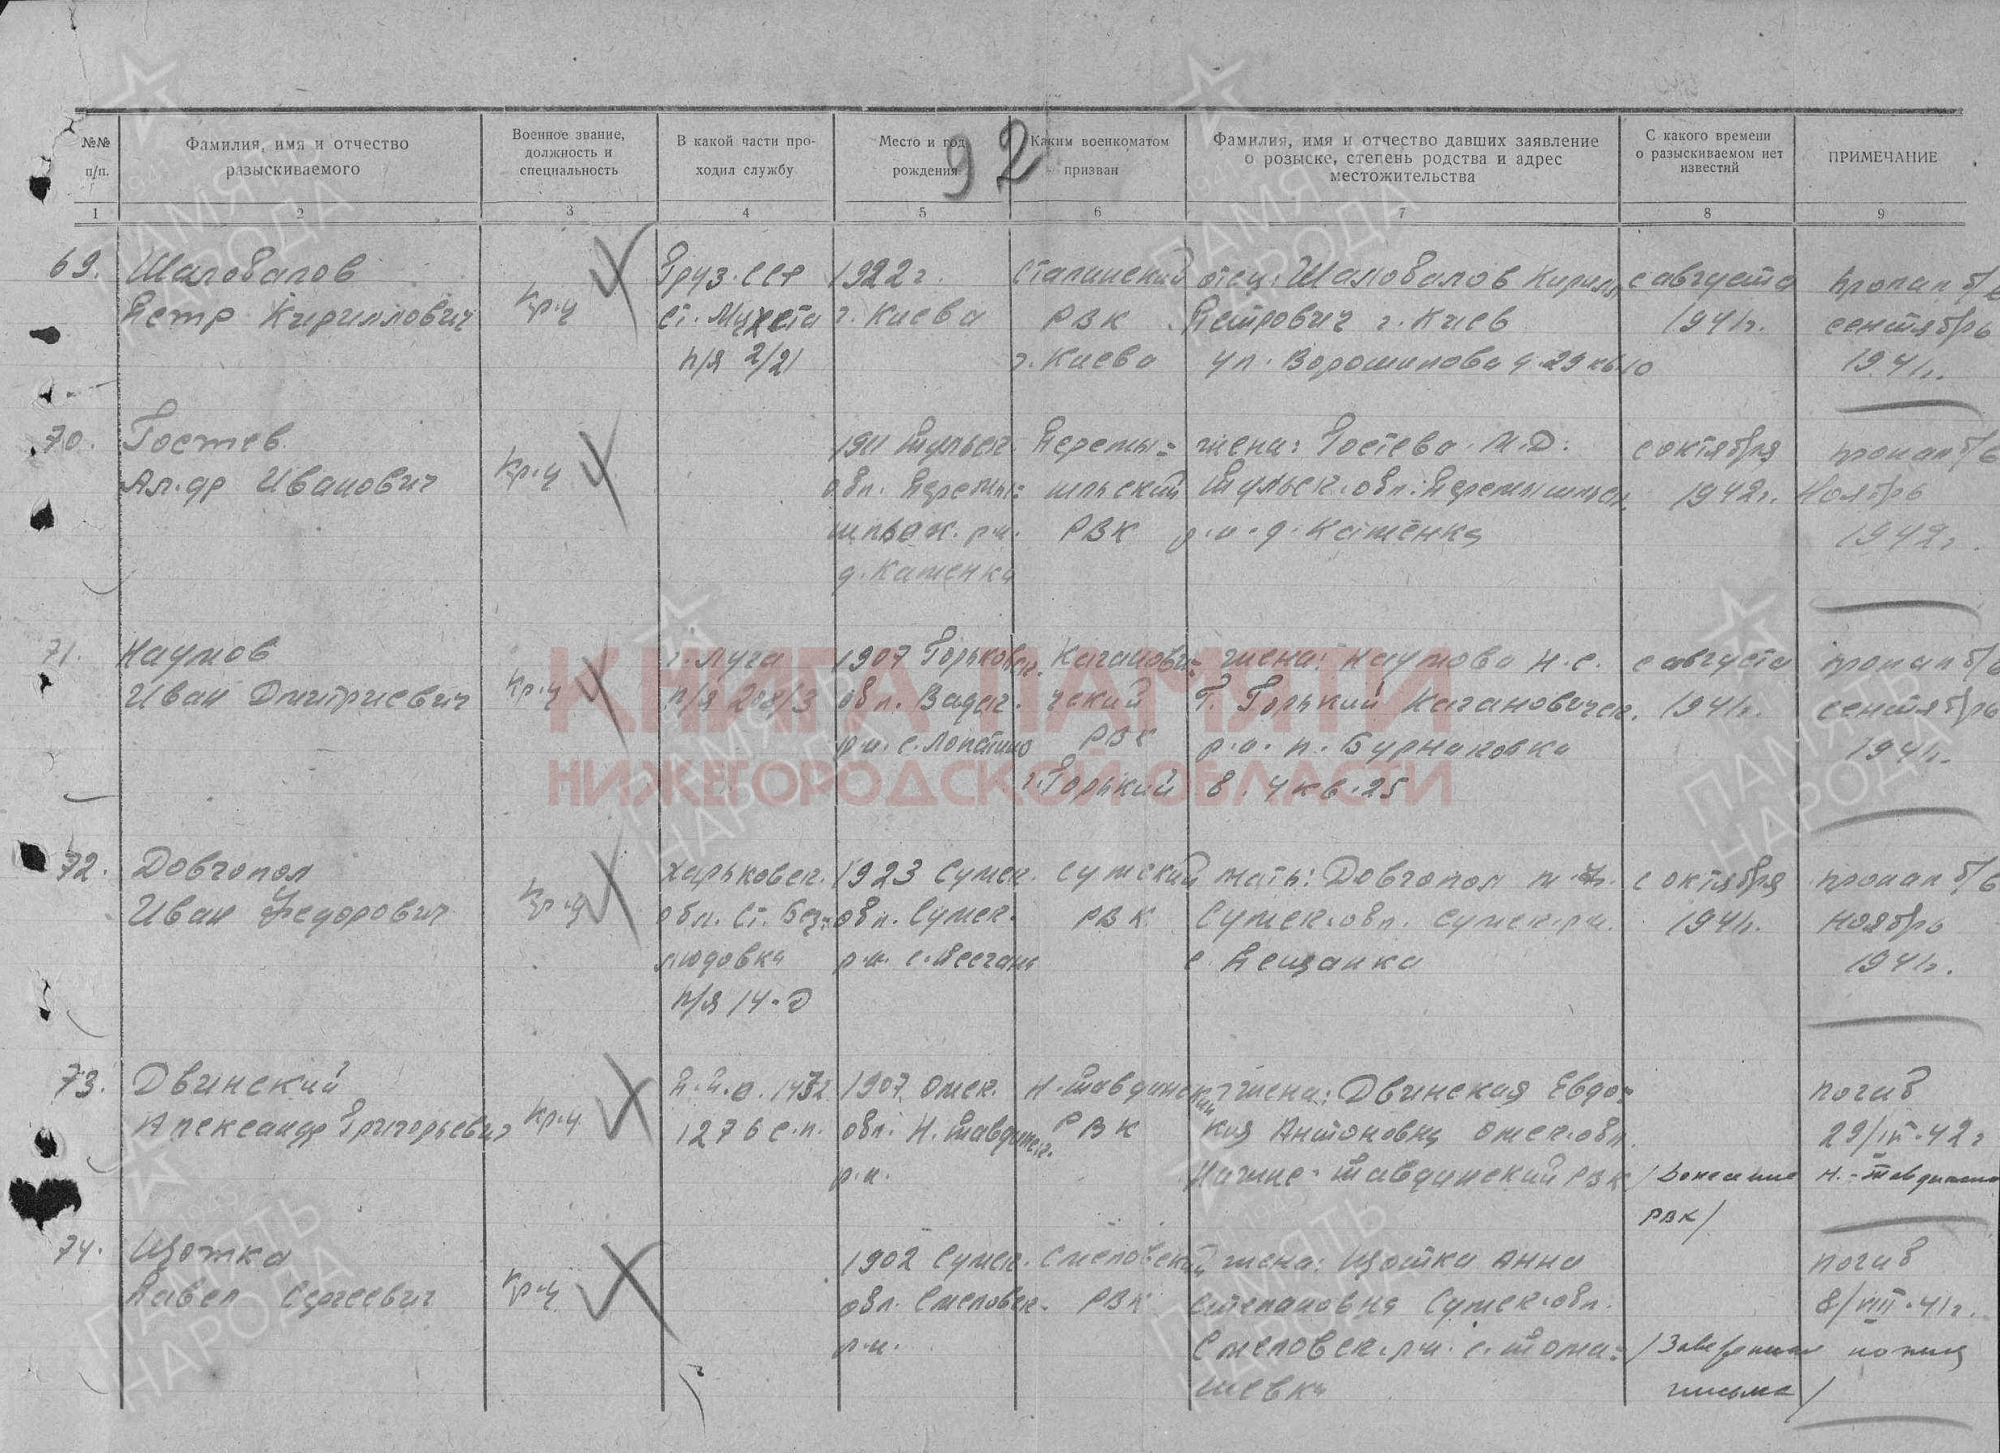 92
№№ п/п.
Фамилия, имя и отчество разыскиваемого
Военное звание, должность и специальность
В какой части про-
ходил службу
Место и год рождения
Каким военкоматом призван
Фамилия, имя и отчество давших заявление
о розыске, степень родства и адрес
местожительства
С какого времени
о разыскиваемом нет
известий
ПРИМЕЧАНИЕ
1 2 3 4 5 6 7 8 9
69. Шаповалов
Петр Кириллович
кр-ц
Груз. ССР
ст. Мцхета
п/я 2/21
1922 г.
г. Киева
Сталинский
РВК
г. Киева
отец: Шаповалов Кирилл
Петрович г. Киев
ул. Ворошилова д. 29 кв 10
с августа
1941г.
пропал б/в
сентябрь
1941г.
70. Гостев
Ал-др Иванович
кр-ц
1911 Тульск.
обл. Перемы-
шльск. р-н.
д. Каменка
Перемы-
шльский
РВК
жена: Гостева М.Д.
Тульск. обл. Перемышльск.
р-н. д. Каменка
с октября
1942г.
пропал б/в
Ноябрь
1942г.
71. Наумов
Иван Дмитриевич
кр-ц
г. Луга
п/я 208/3
1907 Горьковск.
обл. Вадск.
р-н. с. Лопатино
Каганови-
ческий
РВК
г. Горький
жена: Наумова Н.С.
г. Горький Кагановическ.
р-н. п. Бурнаковка
8. 4 кв. 25
с августа
1941г.
пропал б/в
сентябрь
1941г.
72. Довгопол
Иван Федорович
кр-ц
Харьковск.
обл. ст. Без-
людовка
п/я 14-Д
1923 Сумск.
обл. Сумск.
р-н.
Сумский
РВК
мать: Довгопол
Сумск. обл. Сумск. р-н.
с. Пещанка
с октября
1941г.
пропал б/в
ноябрь
1941г.
73. Двинский
Александр Григорьевич
кр-ц
1276 с.п.
1907 Омск.
обл. Н. Тавдинск.
р-н.
Н-Тавдинский
РВК
жена: Двинская Евдо-
кия Антоновна Омск. обл.
Нижне-Тавдинский РВК
/Донесение
РВК/
погиб
29/III-42г
Н.-Тавдинского
74. Щотка
Павел Сергеевич
кр-ц
1902 Сумск.
обл. Смеловск.
р-н.
Смеловский
РВК
жена: Щотка Анна
Степановна Сумск. обл.
Смеловск. р-н. с. Тома-
шевка
/Заверенная копия
письма/
погиб
8/VIII-41г.
КНИГА ПАМЯТИ
НИЖЕГОРОДСКОЙ ОБЛАСТИ
ПАМЯТЬ НАРОДА
ПАМЯТЬ НАРОДА
ПАМЯТЬ НАРОДА
ПАМЯТЬ НАРОДА
ПАМЯТЬ НАРОДА
ПАМЯТЬ НАРОДА